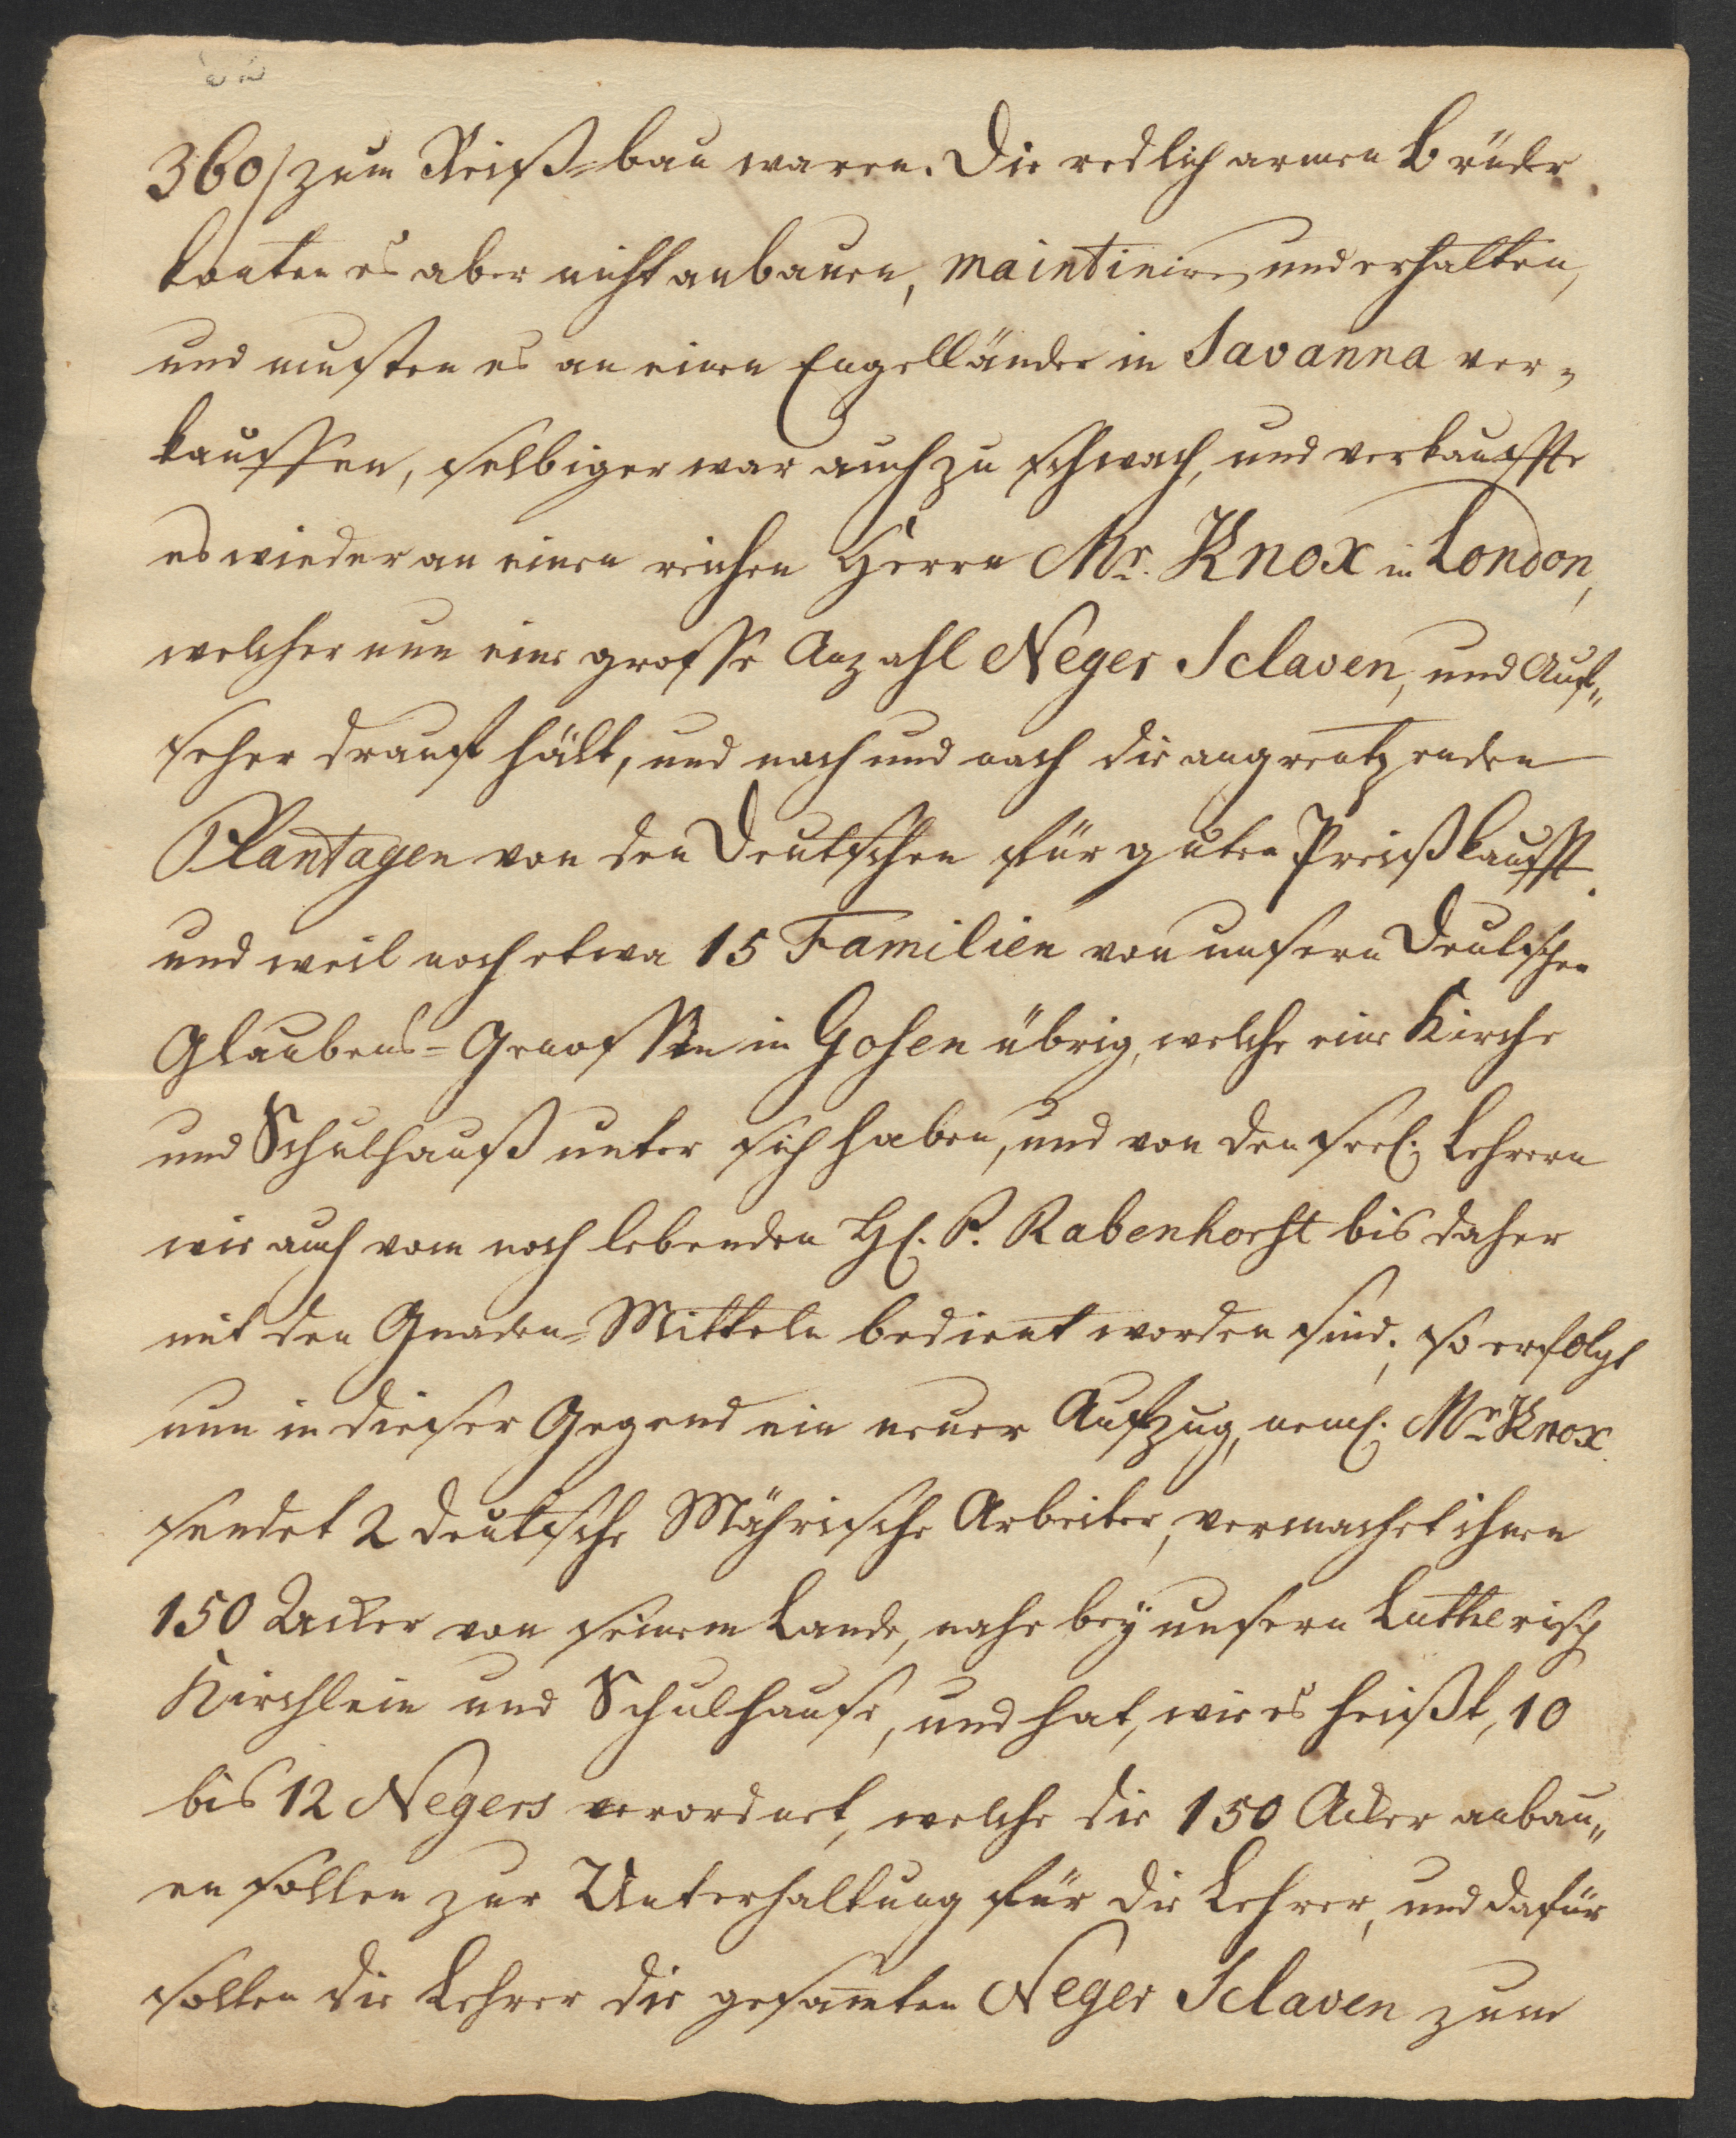 360/ zum Reiß-bau waren. Die redlich armen Brüder
konten es aber nicht anbauen, maintiniren und erhalten,
und musten es an einen Engelländer in Savanna ver-
kauffen, selbiger war auch zu schwach, und verkauffte
es wieder an einen reichen Herrn Mr. Knox in London,
welcher nun eine grosse Anzahl Neger Sclaven, und Auf-
seher drauf hält, und nach und nach die angrentzenden
Plantagen von den Deutschen für guten Preiß kaufft.
und weil noch etwa 15 Familien von unsern Deutschen
Glaubens-Genossen in Gosen übrig, welche eine Kirche
und Schulhauß unter sich haben, und von den seel. Lehrern
wie auch vom noch lebenden H. P. Rabenhorst bis daher
mit den Gnaden-Mitteln bedient worden sind; so erfolgt
nun in dieser Gegend ein neuer Aufzug, neml. Mr Knox
sendet 2 deutsche Mährische Arbeiter, vermachet ihnen
150 Acker von seinem Lande, nahe bey unsern Lutherisch
Kirchlein und Schulhause, und hat, wie es heißt, 10
bis 12 Negers verordnet, welche die 150 Acker anbau-
en sollen zur Unterhaltung für die Lehrer, und dafür
sollen die Lehrer die gesamten Neger Sclaven zum